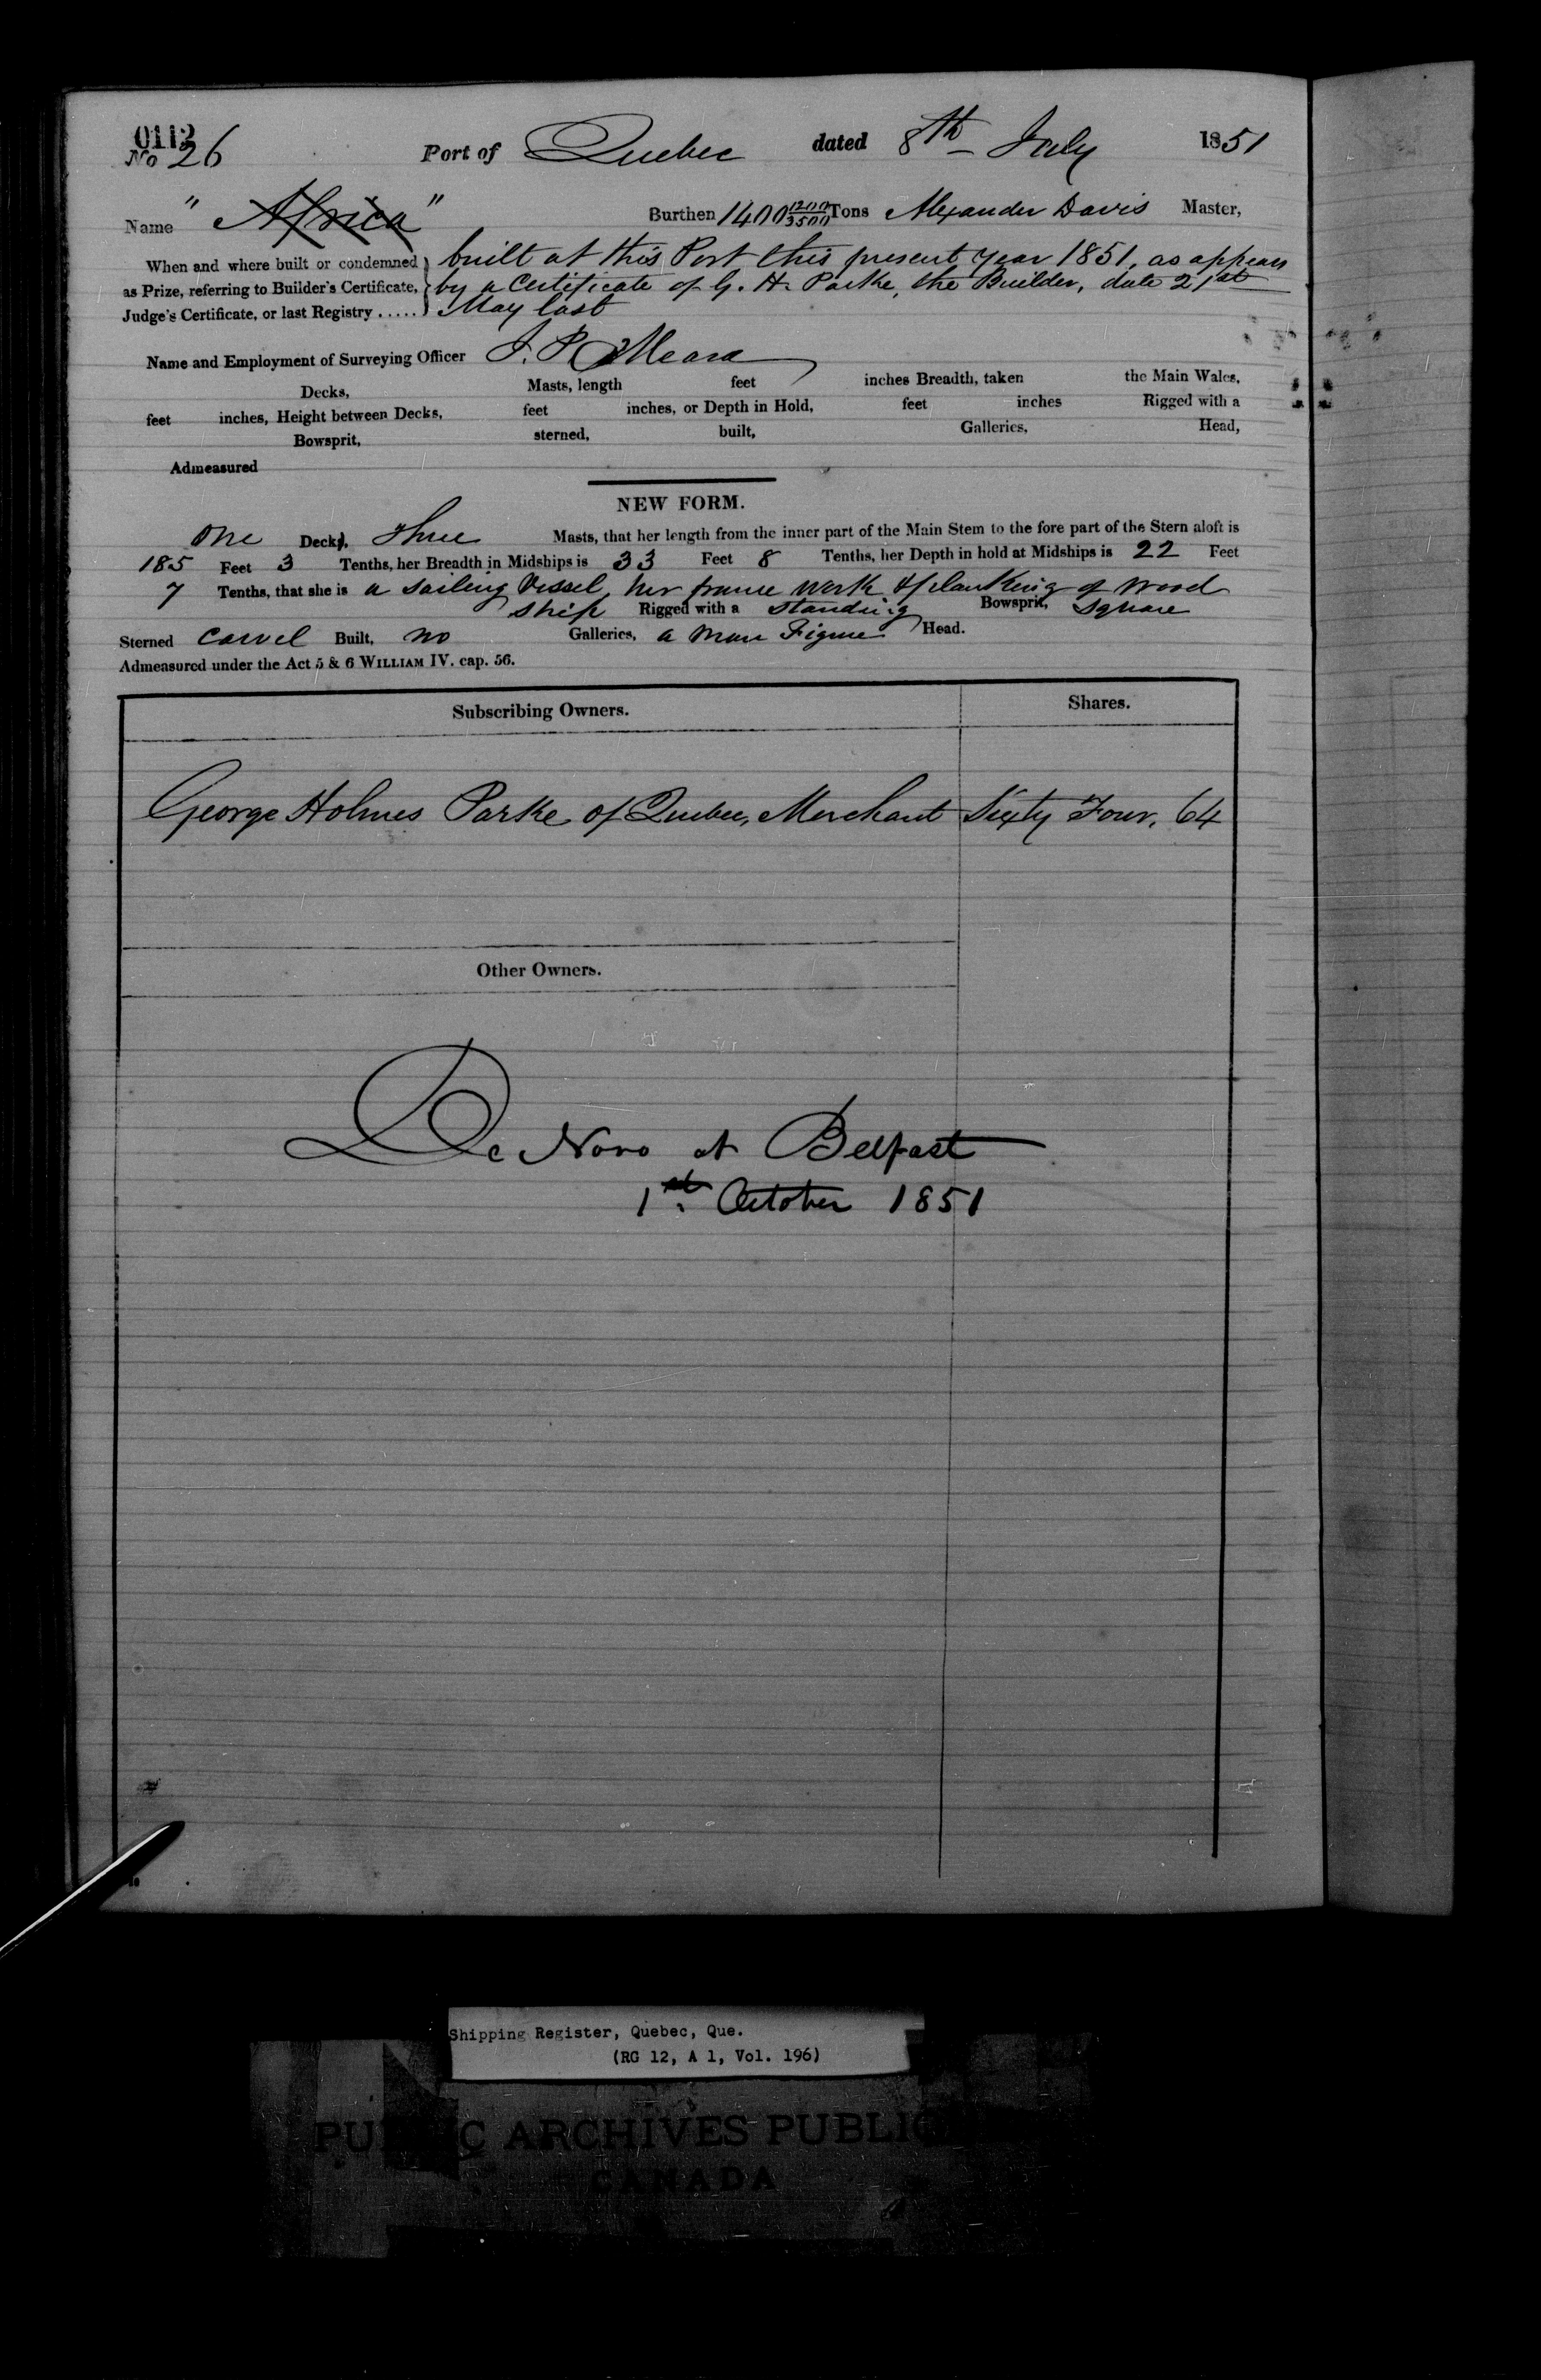 0112
No 26 Port of Quebec dated 8th July 1851
Name "Africa" Burthen 1400 1200/3500 Tons Alexander Davis Master,
When and where built or condemned as Prize, referring to Builder's Certificate, Judge's Certificate, or last Registry ..... } built at this Port this present year 1851, as appears
by a Certificate of G. H. Parke, the Builder, date 21st
May last
Name and Employment of Surveying Officer J. P. OMeara
Decks, Masts, length feet inches Breadth, taken the Main Wales,
feet inches, Height between Decks, feet inches, or Depth in Hold, feet inches Rigged with a
Bowsprit, sterned, built, Galleries, Head,
Admeasured
NEW FORM.
One Deck, Three Masts, that her length from the inner part of the Main Stem to the fore part of the Stern aloft is
185 Feet 3 Tenths, her Breadth in Midships is 33 Feet 8 Tenths, her Depth in hold at Midships is 22 Feet
7 Tenths, that she is a sailing Vessel, her frame work & planking of wood
ship Rigged with a standing Bowsprit, square
Sterned carvel Built, no Galleries, a Man Figure Head.
Admeasured under the Act 5 & 6 WILLIAM IV. cap. 56.
Subscribing Owners. Shares.
George Holmes Parke of Quebec, Merchant Sixty Four, 64
Other Owners.
De Novo at Belfast
1st October 1851
Shipping Register, Quebec, Que.
(RG 12, A 1, Vol. 196)
ARCHIVES
CANADA